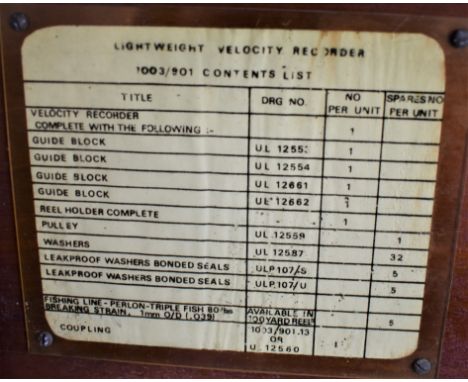 LIGHTWEIGHT VELOCITY RECORDER
1003/901 CONTENTS LIST
TITLE DRG NO. NO PER UNIT SPARES NO PER UNIT
VELOCITY RECORDER
COMPLETE WITH THE FOLLOWING :- 1
GUIDE BLOCK UL 12553 1
GUIDE BLOCK UL 12554 1
GUIDE BLOCK UL 12661 1
GUIDE BLOCK UL 12662 1
REEL HOLDER COMPLETE 1
PULLEY UL 12559 1
WASHERS UL 12587 32
LEAKPROOF WASHERS BONDED SEALS ULP.107/S 5
LEAKPROOF WASHERS BONDED SEALS ULP.107/U 5
FISHING LINE - PERLON - TRIPLE FISH 80 lbs
BREAKING STRAIN. 1mm O/D (.039) AVAILABLE IN 100 YARD REEL 5
COUPLING 1003/901.13 OR U. 12560 1